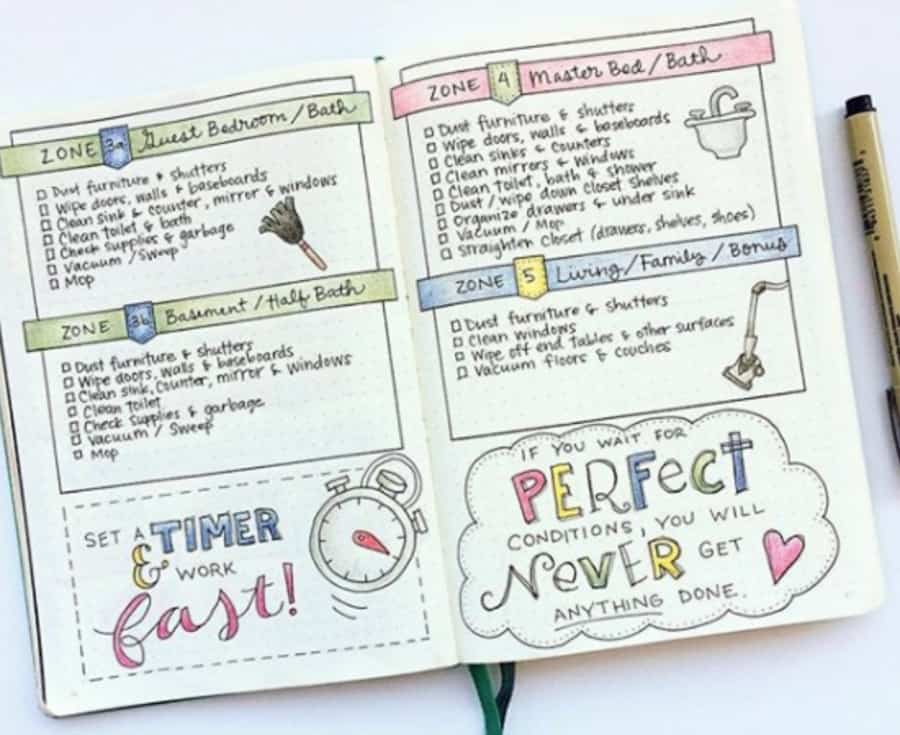 ZONE 3a Guest Bedroom/Bath
Dust furniture & shutters
Wipe doors, walls & baseboards
Clean sink & counter, mirror & windows
Clean toilet & bath
Check supplies & garbage
Vacuum / Sweep
Mop
ZONE 3b Basement / Half Bath
Dust furniture & shutters
Wipe doors, walls & baseboards
Clean sink, counter, mirror & windows
Clean toilet
Check supplies & garbage
Vacuum / Sweep
Mop
SET A TIMER
& WORK
fast!
ZONE 4 Master Bed / Bath
Dust furniture & shutters
Wipe doors, walls & baseboards
Clean sinks & counters
Clean mirrors & windows
Clean toilet, bath & shower
Dust / wipe down closet shelves
Organize drawers & under sink
Vacuum / Mop
Straighten closet (drawers, shelves, shoes)
ZONE 5 Living/Family/Bonus
Dust furniture & shutters
Clean windows
Wipe off end tables & other surfaces
Vacuum floors & couches
IF YOU WAIT FOR
PERFECT
CONDITIONS, YOU WILL
NEVER GET
ANYTHING DONE.